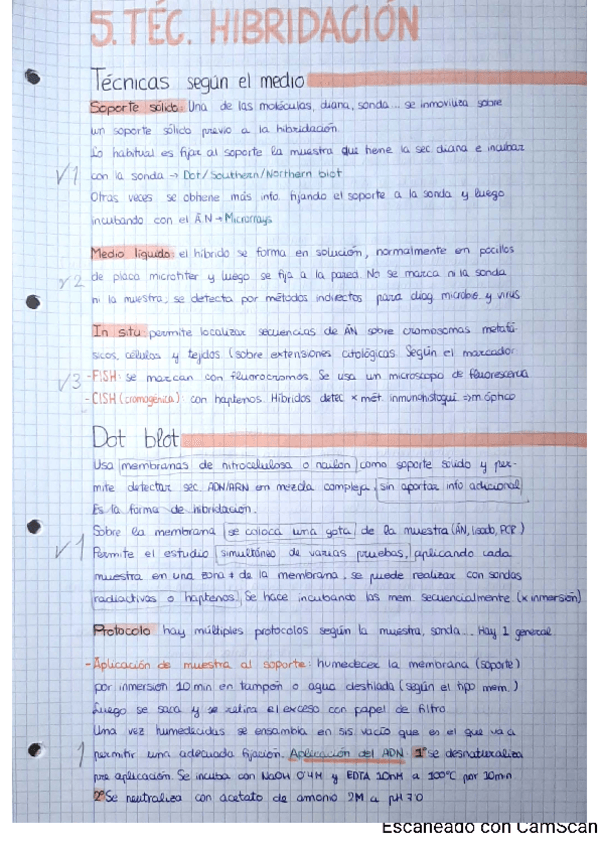 5. TÉC. HIBRIDACIÓN
Técnicas según el medio
Soporte sólido: Una de las moléculas, diana, sonda... se inmoviliza sobre
un soporte sólido previo a la hibridación.
Lo habitual es fijar al soporte la muestra que tiene la sec diana e incubar
√1 con la sonda → Dot/Southern/Northern blot
Otras veces se obtiene más info. fijando el soporte a la sonda y luego
incubando con el ÁN → Microrrays
Medio líquido: el híbrido se forma en solución, normalmente en pocillos
√2 de placa microtiter y luego se fija a la pared. No se marca ni la sonda
ni la muestra, se detecta por métodos indirectos para diag microbio. y virus
In situ: permite localizar secuencias de ÁN sobre cromosomas metafá-
sicos, células y tejidos (sobre extensiones citológicas. Según el marcador
√3 -FISH: se marcan con fluorocromos. Se usa un microscopio de fluorescencia
-CISH (cromogénica): con haptenos. Híbridos detec x mét. inmunohistoquí ⇒ m.óptico
Dot blot
Usa membranas de nitrocelulosa o nailon como soporte sólido y per-
mite detectar sec. ADN/ARN en mezcla compleja, sin aportar info adicional
Es la forma de hibridación.
Sobre la membrana se coloca una gota de la muestra (ÁN, lisado, PCR)
√1 Permite el estudio simultáneo de varias pruebas, aplicando cada
muestra en una zona ≠ de la membrana, se puede realizar con sondas
radiactivas o haptenos. Se hace incubando las mem. secuencialmente (x inmersión)
Protocolo hay múltiples protocolos según la muestra, sonda... Hay 1 general.
-Aplicación de muestra al soporte: humedecer la membrana (soporte)
por inmersión 10 min en tampón o agua destilada (según el tipo mem.)
Luego se saca y se retira el exceso con papel de filtro.
Una vez humedecidas se ensambla en sis vacío que es el que va a
1 permitir una adecuada fijación. Aplicación del ADN: 1º se desnaturaliza
pre aplicación. Se incuba con NaOH 0'4M y EDTA 10nM a 100ºC por 10min
2º Se neutraliza con acetato de amonio 2M a pH 7'0
Escaneado con CamScan